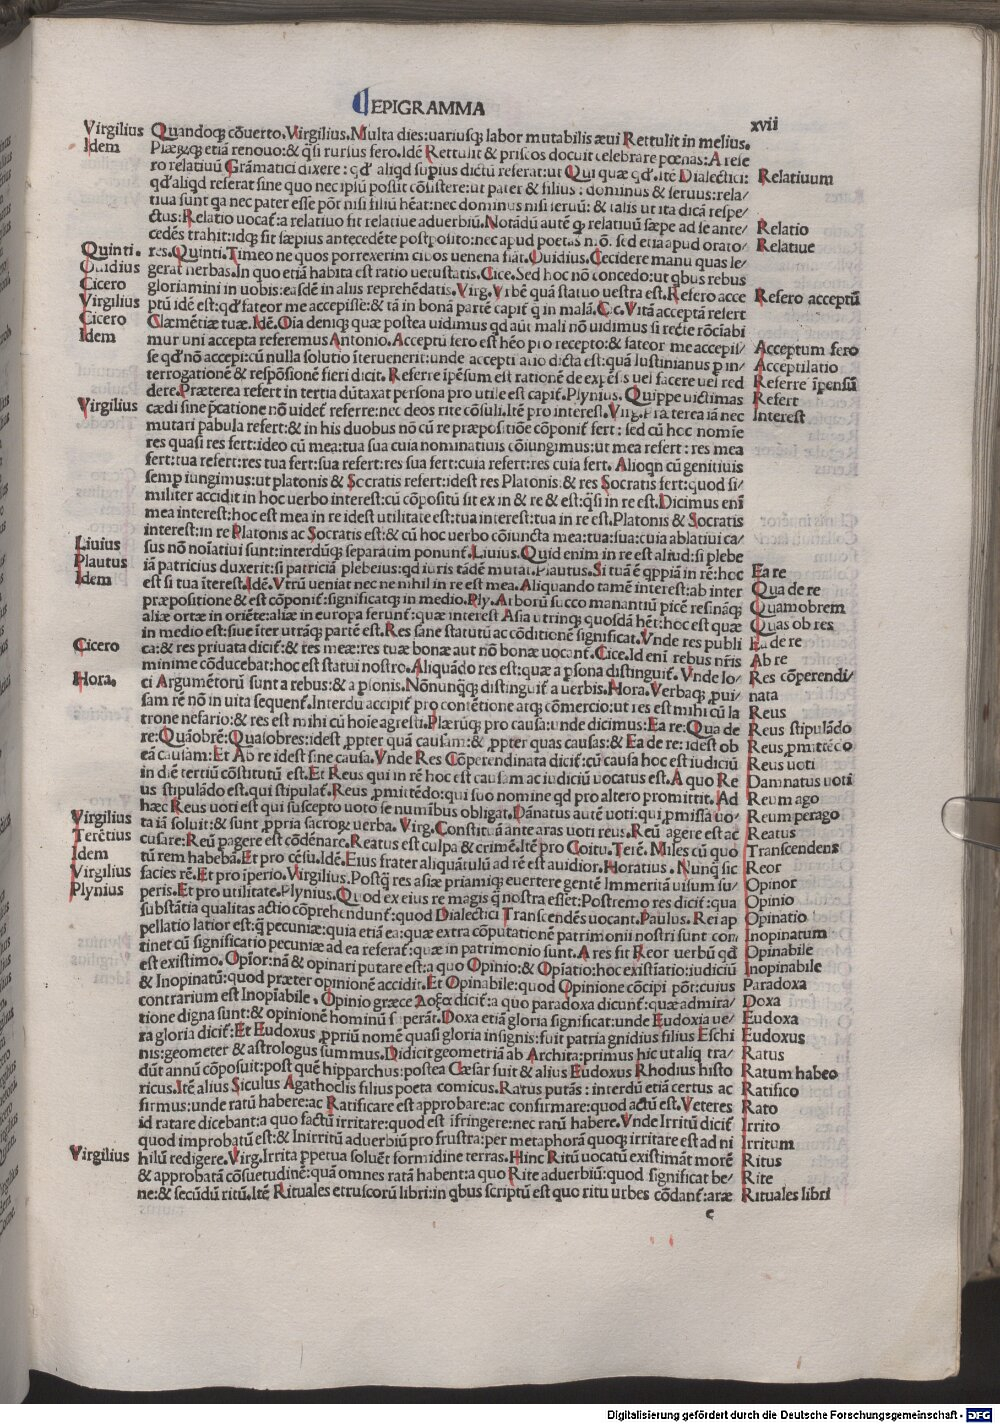 EPIGRAMMA
xvii
Virgilius
Idem
Quinti.
Ouidius
Cicero
Virgilius
Cicero
Idem
Virgilius
Liuius
Plautus
Idem
Cicero
Hora.
Virgilius
Terētius
Idem
Virgilius
Plynius
Virgilius
Quandoq; cōuerto. Virgilius. Multa dies: uariusq; labor mutabilis æui Rettulit in melius.
etiā renouo: & q̄si rursus fero. Idē Rettulit & priscos docuit celebrare pœnas: A refe
ro relatiuū Grāmatici dixere: qd' aliqd supius dictū referat: ut Qui quæ qd'. itē Dialectici:
qd' aliqd referat sine quo nec ipiū possit cōsistere: ut pater & filius: dominus & seruus: rela/
tiua sunt qa nec pater esse pōt nisi filiū hēat: nec dominus nisi seruū: & talis ut ita dicā respe/
ctus: Relatio uocat: a relatiuo fit relatiue aduerbiū. Notādū autē q relatiuū sæpe ad se ante/
cedēs trahit: idq; fit sæpius antecedēte postposito: nec apud poetas mō. sed etia apud orato/
res. Quinti. Timeo ne quos porrexerim cibos uenena fiāt. Ouidius. Cecidere manu quas le/
gerat herbas. In quo etiā habita est ratio uetustatis. Cice. Sed hoc nō concedo: ut qbus rebus
gloriamini in uobis: easdē in aliis reprehēdatis. Virg. Vrbē quā statuo uestra est. Refero acce
ptū idē est: qd' fateor me accepisse: & tā in bonā partē capit q in malā. Cic. Vitā acceptā refert
Clæmētiæ tuæ. Idē. Oia deniq; quæ postea uidimus qd aūt mali nō uidimus si recte rōciabi
mur uni accepta referemus Antonio. Acceptū fero est hēo pro recepto: & fateor me accepis/
se qd' nō accepi: cū nulla solutio īteruenerit: unde accepti latio dicta est: quā Iustinianus p in/
terrogationē & respōsionē fieri dicit. Referre īpēsum est rationē de expēsis uel facere uel red
dere. Præterea refert in tertia dūtaxat persona pro utile est capit. Plynius. Quippe uictimas
cædi sine pcatione nō uidet referre: nec deos rite cōsuli. Itē pro interest. Virg. Præterea iā nec
mutari pabula refert: & in his duobus nō cū re præpositiōe cōponit fert: sed cū hoc nomīe
res quasi res fert: ideo cū mea: tua sua cuia nominatiuis cōiungimus: ut mea refert: res mea
fert: tua refert: res tua fert: sua refert: res sua fert: cuia refert: res cuia fert. Alioqn cū genitiuis
semp iungimus: ut platonis & Socratis refert: idest res Platonis & res Socratis fert: quod si/
militer accidit in hoc uerbo interest: cū cōpositū sit ex in & re & est: q̄si in re est. Dicimus enī
mea interest: hoc est mea in re idest utilitate est: tua interest: tua in re est. Platonis & Socratis
interest: in re Platonis ac Socratis est: & cū hoc uerbo cōiuncta mea: tua: sua: cuia ablatiui ca/
sus nō noiatiui sunt: interdūq; separatim ponunt. Liuius. Quid enim in re est aliud: si plebe
iā patricius duxerit: si patriciā plebeius: qd iuris tādē mutat. Plautus. Si tuā ē qppiā in rē: hoc
est si tua īterest. Idē. Vtrū ueniat nec ne nihil in re est mea. Aliquando tamē interest: ab inter
præpositione & est cōponit: significatq; in medio. Ply. Arborū succo manantiū picē resināq;
aliæ ortæ in oriēte: aliæ in europa ferunt: quæ interest Asia utrinq; quosdā hēt: hoc est quæ
in medio est: siue īter utrāq; partē est. Res sane statutū ac cōditionē significat. Vnde res publi
ca: & res priuata dicit: & res meæ: res tuæ bonæ aut nō bonæ uocant. Cice. Id enī rebus nr̄is
minime cōducebat: hoc est statui nostro. Aliquādo res est: quæ a psona distinguit. Vnde lo/
ci Argumētorū sunt a rebus: & a psonis. Nōnunq̄; distinguit a uerbis. Hora. Verbaq; pui/
sam rē nō in uita sequent. Interdū accipit pro contētione atq; cōmercio: ut res est mihi cū la
trone nefario: & res est mihi cū hoie agresti. Plærūq; pro causa: unde dicimus: Ea re: Qua de
re: Quāobrē: Quasobres: idest ppter quā causam: & ppter quas causas: & Ea de re: idest ob
eā causam: Et Ab re idest sine causa. Vnde Res Cōperendinata dicit: cū causa hoc est iudiciū
in diē tertiū cōstitutū est. Et Reus qui in rē hoc est causam ac iudiciū uocatus est. A quo Re
us stipulādo est. qui stipulat. Reus pmittēdo: qui suo nomine qd pro altero promittit. Ad
hæc Reus uoti est qui suscepto uoto se numībus obligat. Dānatus autē uoti: qui pmissa uo/
ta iā soluit: & sunt ppria sacroq; uerba. Virg. Constituā ante aras uoti reus. Reū agere est ac
cusare: Reū pagere est cōdēnare. Reatus est culpa & crimē. Itē pro Coitu. Terē. Miles cū quo
tū rem habebā. Et pro cēsu. Idē. Eius frater aliquātulū ad rē est auidior. Horatius. Nunq̄ sic
facies rē. Et pro īperio. Virgilius. Postq̄ res asiæ priamiq; euertere gentē Immeritā uisum su/
peris. Et pro utilitate. Plynius. Quod ex eius re magis q̄ nostra esset: Postremo res dicit: qua
substātia qualitas actio cōprehendunt: quod Dialectici Transcendēs uocant. Paulus. Rei ap
pellatio latior est: q̄ pecuniæ: quia etiā ea: quæ extra cōputationē patrimonii nostri sunt con
tinet cū significatio pecuniæ ad ea referat: quæ in patrimonio sunt. A res fit Reor uerbū qd
est existimo. Opior: nā & opinari putare est: a quo Opinio: & Opiatio: hoc existiatio: iudiciū
& Inopinatū: quod præter opinionē accidit. Et Opinabile: quod Opinione cōcipi pōt: cuius
contrarium est Inopiabile. Opinio græce Δοξα dicit: a quo paradoxa dicunt: quæ admira/
tione digna sunt: & opinionē hominū superāt. Doxa etiā gloria significat: unde Eudoxia ue/
ra gloria dicit: Et Eudoxus ppriū nomē quasi gloria insignis: fuit patria gnidius filius Eschi
nis: geometer & astrologus summus. Didicit geometriā ab Archita: primus hic ut aliq tra/
dūt annū cōposuit: post quē hipparchus: postea Cæsar fuit & alius Eudoxus Rhodius histo
ricus. Itē alius Siculus Agathoclis filius poeta comicus. Ratus putās: interdū etiā certus ac
firmus: unde ratū habere: ac Ratificare est approbare: ac confirmare: quod actū est. Veteres
id ratare dicebant: a quo factū irritare: quod est īfringere: nec ratū habere. Vnde Irritū dicit
quod improbatū est: & Inirritū aduerbiū pro frustra: per metaphorā quoq; irritare est ad ni
hilū redigere. Virg. Irrita ppetua soluēt formidine terras. Hinc Ritū uocatū existimāt morē
& approbatā cōsuetudinē: quā omnes ratā habent: a quo Rite aduerbiū: quod significat be/
ne: & secūdū ritū. Itē Rituales etruscorū libri: in qbus scriptū est quo ritu urbes cōdant: aræ
Relatiuum
Relatio
Relatiue
Refero acceptū
Acceptum fero
Acceptilatio
Referre īpensū
Refert
Interest
Ea re
Qua de re
Quamobrem
Quas ob res
Ea de re
Ab re
Res cōperendi/
nata
Reus
Reus stipulādo
Reus pmittēdo
Reus uoti
Damnatus uoti
Reum ago
Reum perago
Reatus
Transcendens
Reor
Opinor
Opinio
Opinatio
Inopinatum
Opinabile
Inopinabile
Paradoxa
Doxa
Eudoxa
Eudoxus
Ratus
Ratum habeo
Ratifico
Rato
Irrito
Irritum
Ritus
Rite
Rituales libri
c
Digitalisierung gefördert durch die Deutsche Forschungsgemeinschaft - DFG